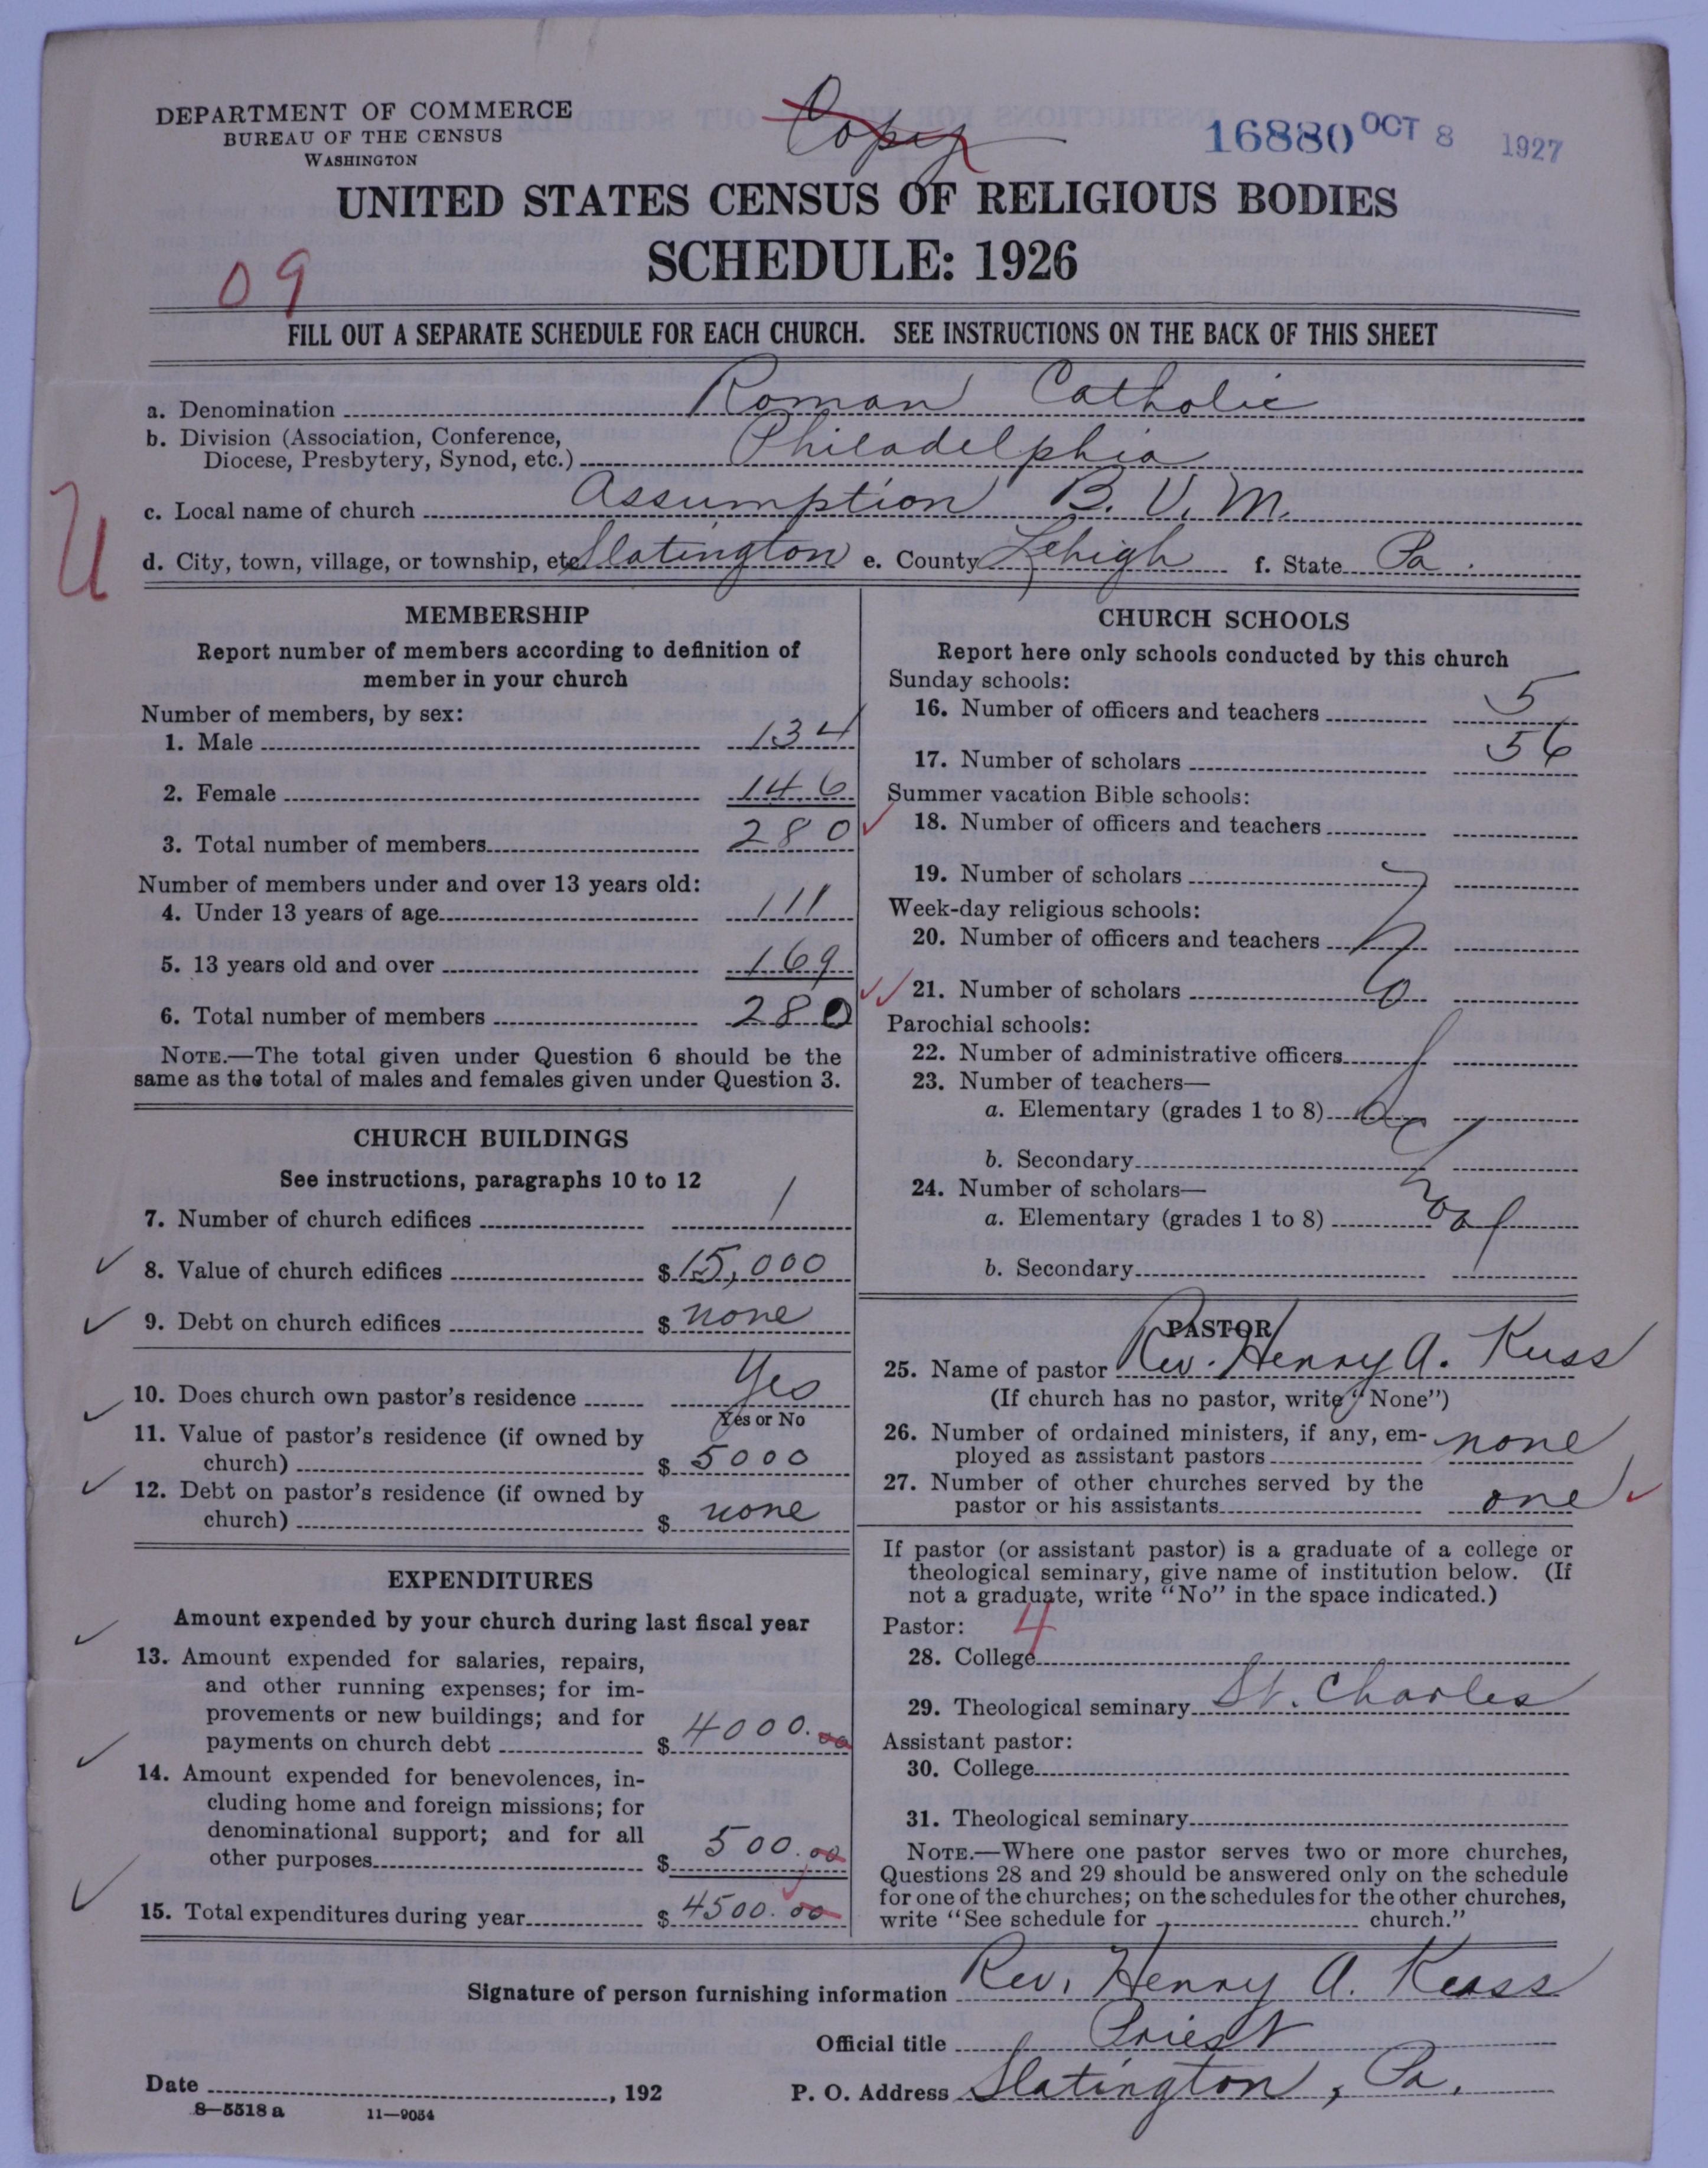 DEPARTMENT OF COMMERCE
BUREAU OF THE CENSUS
WASHINGTON
Copy
16880 OCT 8 1927
UNITED STATES CENSUS OF RELIGIOUS BODIES
SCHEDULE: 1926
09
FILL OUT A SEPARATE SCHEDULE FOR EACH CHURCH. SEE INSTRUCTIONS ON THE BACK OF THIS SHEET
a. Denomination Roman Catholic
b. Division (Association, Conference,
Diocese, Presbytery, Synod, etc.) Philadelphia
c. Local name of church Assumption B. V. M.
U
d. City, town, village, or township, etc Slatington e. County Lehigh f. State Pa.
MEMBERSHIP
Report number of members according to definition of
member in your church
Number of members, by sex:
1. Male 134
2. Female 146
3. Total number of members 280
Number of members under and over 13 years old:
4. Under 13 years of age 111
5. 13 years old and over 169
6. Total number of members 280
NOTE.—The total given under Question 6 should be the
same as the total of males and females given under Question 3.
CHURCH BUILDINGS
See instructions, paragraphs 10 to 12
7. Number of church edifices 1
8. Value of church edifices $ 15,000
9. Debt on church edifices $ none
10. Does church own pastor's residence Yes
Yes or No
11. Value of pastor's residence (if owned by
church) $ 5000
12. Debt on pastor's residence (if owned by
church) $ none
EXPENDITURES
Amount expended by your church during last fiscal year
13. Amount expended for salaries, repairs,
and other running expenses; for im-
provements or new buildings; and for
payments on church debt $ 4000.00
14. Amount expended for benevolences, in-
cluding home and foreign missions; for
denominational support; and for all
other purposes $ 500.00
15. Total expenditures during year $ 4500.00
CHURCH SCHOOLS
Report here only schools conducted by this church
Sunday schools:
16. Number of officers and teachers 5
17. Number of scholars 56
Summer vacation Bible schools:
18. Number of officers and teachers
19. Number of scholars
Week-day religious schools:
20. Number of officers and teachers
21. Number of scholars
Parochial schools:
22. Number of administrative officers
23. Number of teachers—
a. Elementary (grades 1 to 8)
b. Secondary
24. Number of scholars—
a. Elementary (grades 1 to 8)
b. Secondary
No School
PASTOR
25. Name of pastor Rev. Henry A. Kuss
(If church has no pastor, write "None")
26. Number of ordained ministers, if any, em-
ployed as assistant pastors none
27. Number of other churches served by the
pastor or his assistants one
If pastor (or assistant pastor) is a graduate of a college or
theological seminary, give name of institution below. (If
not a graduate, write "No" in the space indicated.)
Pastor: 4
28. College
29. Theological seminary St. Charles
Assistant pastor:
30. College
31. Theological seminary
NOTE.—Where one pastor serves two or more churches,
Questions 28 and 29 should be answered only on the schedule
for one of the churches; on the schedules for the other churches,
write "See schedule for church."
Signature of person furnishing information Rev. Henry A. Kuss
Official title Priest
Date , 192
P. O. Address Slatington, Pa.
8—5518 a 11—9054